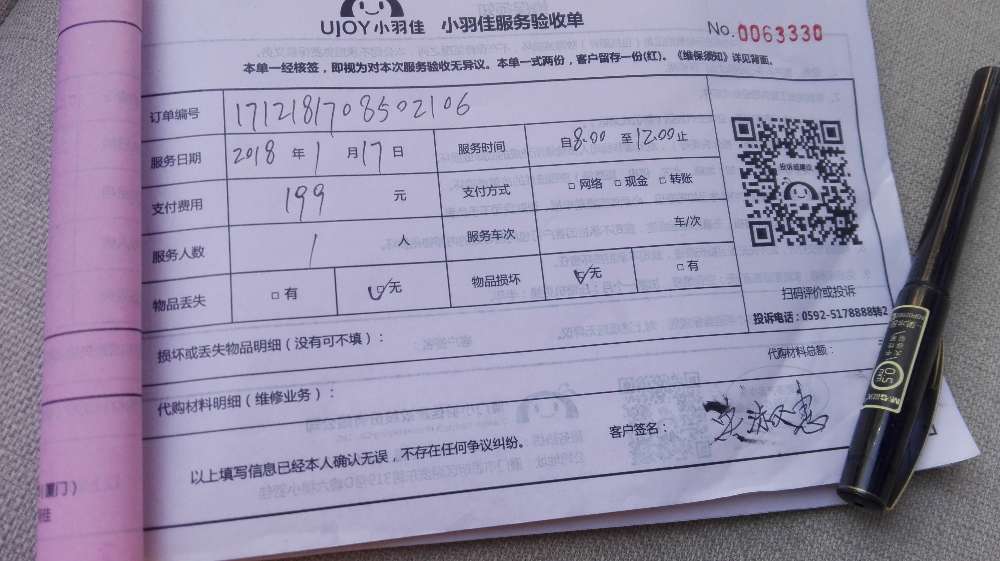 UJOY小羽佳 小羽佳服务验收单
No.0063330
本单一经核签，即视为对本次服务验收无异议。本单一式两份，客户留存一份(红)。《维保须知》详见背面。
订单编号 1712181708502106
服务日期 2018 年 1 月 17 日 服务时间 自8:00 至12:00止
支付费用 199 元 支付方式 □ 网络 □ 现金 □ 转账
服务人数 1 人 服务车次 车/次
物品丢失 □ 有 ☑无 物品损坏 ☑无 □ 有
投诉或建议
扫码评价或投诉
投诉电话：0592-5178888转2
损坏或丢失物品明细（没有可不填）：
代购材料总额：
代购材料明细（维修业务）：
客户签名：
以上填写信息已经本人确认无误，不存在任何争议纠纷。
厦门）
0.5